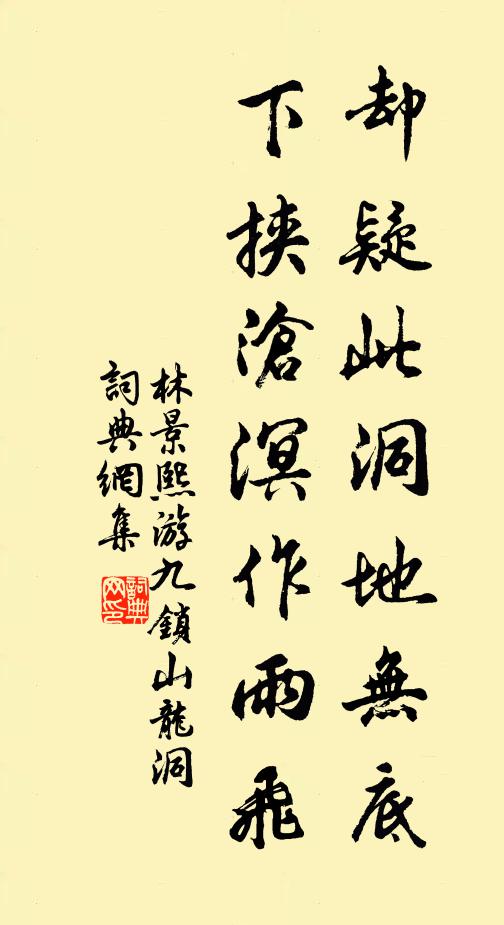 却疑此洞地無底
下挾滄溟作雨飛
林景熙游九鎖山龍洞
詞典網集
詞典网印